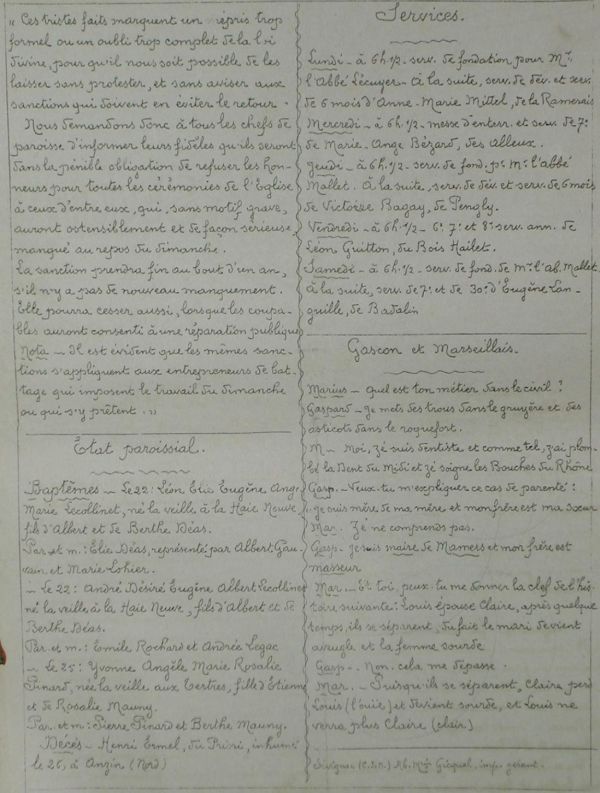 « Ces tristes faits marquent un mépris trop
formel ou un oubli trop complet de la loi
divine, pour qu'il nous soit possible de les
laisser sans protester, et sans aviser aux
sanctions qui doivent en éviter le retour.
Nous demandons donc à tous les chefs de
paroisse d'informer leurs fidèles qu'ils seront
dans la pénible obligation de refuser les hon-
neurs pour toutes les cérémonies de l'Eglise
à ceux d'entre eux, qui, sans motif grave,
auront ostensiblement et de façon sérieuse,
manqué au repos du dimanche.
La sanction prendra fin au bout d'un an,
s'il n'y a pas de nouveau manquement.
Elle pourra cesser aussi, lorsque les coupa-
bles auront consenti à une réparation publique
Nota – Il est évident que les mêmes sanc-
tions s'appliquent aux entrepreneurs de bat-
tage qui imposent le travail du dimanche
ou qui s'y prêtent. »
Etat paroissial.
Baptêmes – Le 22: Léon Elie Eugène Ange
Marie Lecollinet, né la veille à la Haie Neuve
fils d'Albert et de Berthe Déas.
Par. et m.: Elie Déas, représenté par Albert Gau-
vain et Marie Lohier.
– Le 22: André Désiré Eugène Albert Lecollinet
né la veille à la Haie Neuve, fils d'Albert et de
Berthe Déas.
Par. et m.: Emile Rochard et Andrée Legac
– Le 25: Yvonne Angèle Marie Rosalie
Pinard, née la veille aux Tertres, fille d'Etienne
et de Rosalie Mauny.
Par. et m: Pierre Pinard et Berthe Mauny.
Décès – Henri Ermel, du inhumé
le 26, à Anzin (Nord)
Services.
Lundi – à 6h.½ – serv. de fondation pour Mr.
l'Abbé Lécuyer – à la suite, serv. de dév. et serv.
de 6 mois d'Anne-Marie Mittel, de la Ramerais
Mercredi – à 6h.½ – messe d'enterr. et serv. de 7e
de Marie-Ange Bézard, des Alleux.
Jeudi – à 6h.½ – serv. de fond. pr. Mr. l'abbé
Mallet. À la suite, serv. de dév. et serv. de 6 mois
de Victoire Bagay, de Pengly.
Vendredi – à 6h.½ – 6e. 7e. et 8e. serv. ann. de
Léon Guitton, du Bois Hailet.
Samedi – à 6h.½ – serv. de fond. de Mr. l'Ab. Mallet
à la suite, serv. de 7e. et de 30e. d'Eugène Lan-
guille, de Badalin
Gascon et Marseillais.
Marius – Quel est ton métier dans le civil ?
Gaspard – Je mets des trous dans le gruyère et des
asticots dans le roquefort.
M – Moi, zé suis dentiste et comme tel, z'ai plom-
bé la Dent du Midi et zé soigne les Bouches du Rhône
Gasp – Veux-tu m'expliquer ce cas de parenté :
je suis mère de ma mère et mon frère est ma sœur
Mar. Zé ne comprends pas.
Gasp – je suis maire de Mamers et mon frère est
masseur
Mar. – Et toi, peux-tu me donner la clef de l'his-
toire suivante: Louis épouse Claire, après quelque
temps, ils se séparent, du fait le mari devient
aveugle et la femme sourde
Gasp – Non, cela me dépasse.
Mar. – Puisqu'ils se séparent, Claire perd
Louis (l'ouïe) et devient sourde, et Louis ne
verra plus Claire (clair)
Sévignac (C.d.N.) Ab. Gicquel, imp. gérant.